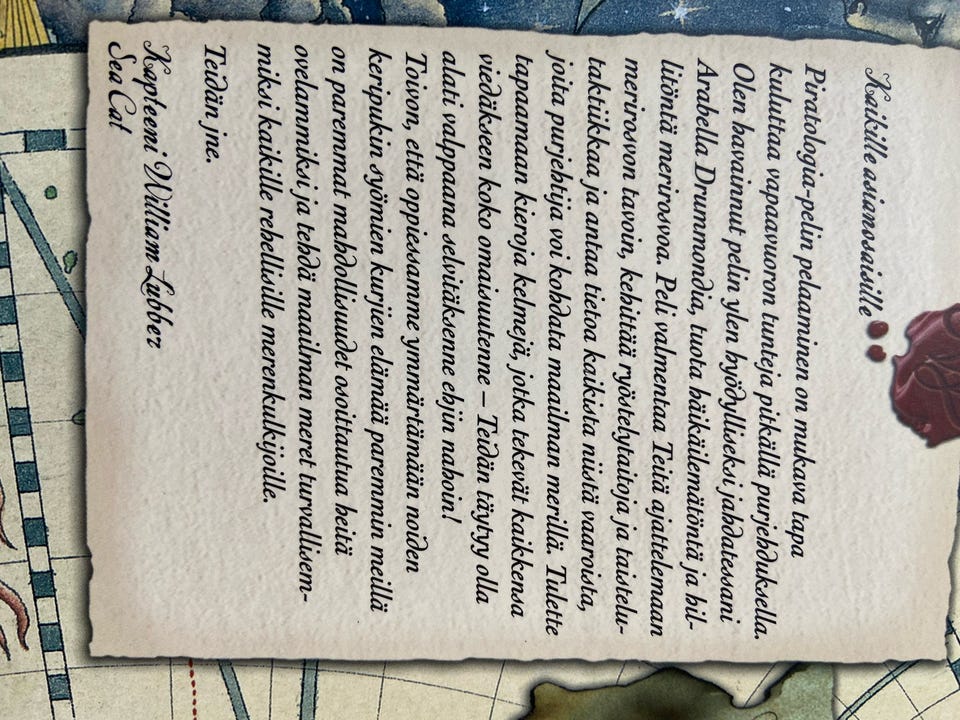 Kaikille asianosaisille
Piratologia-pelin pelaaminen on mukava tapa
kuluttaa vapaavuoron tunteja pitkällä purjehduksella.
Olen havainnut pelin ylen hyödylliseksi jahdatessani
Arabella Drummondia, tuota häikäilemätöntä ja hil-
litöntä merirosvoa. Peli valmentaa Teitä ajattelemaan
merirosvon tavoin, kehittää ryöstelytaitoja ja taistelu-
taktiikkaa ja antaa tietoa kaikista niistä vaaroista,
joita purjehtija voi kohdata maailman merillä. Tulette
tapaamaan kieroja kelmejä, jotka tekevät kaikkensa
viedäkseen koko omaisuutenne – Teidän täytyy olla
alati valppaana selvitäksenne ehjin nahoin!
Toivon, että oppiessamme ymmärtämään noiden
keripukin syömien kurjien elämää paremmin meillä
on paremmat mahdollisuudet osoittautua heitä
ovelammiksi ja tehdä maailman meret turvallisem-
miksi kaikille rehellisille merenkulkijoille.
Teidän jne.
Kapteeni William Lubber
Sea Cat